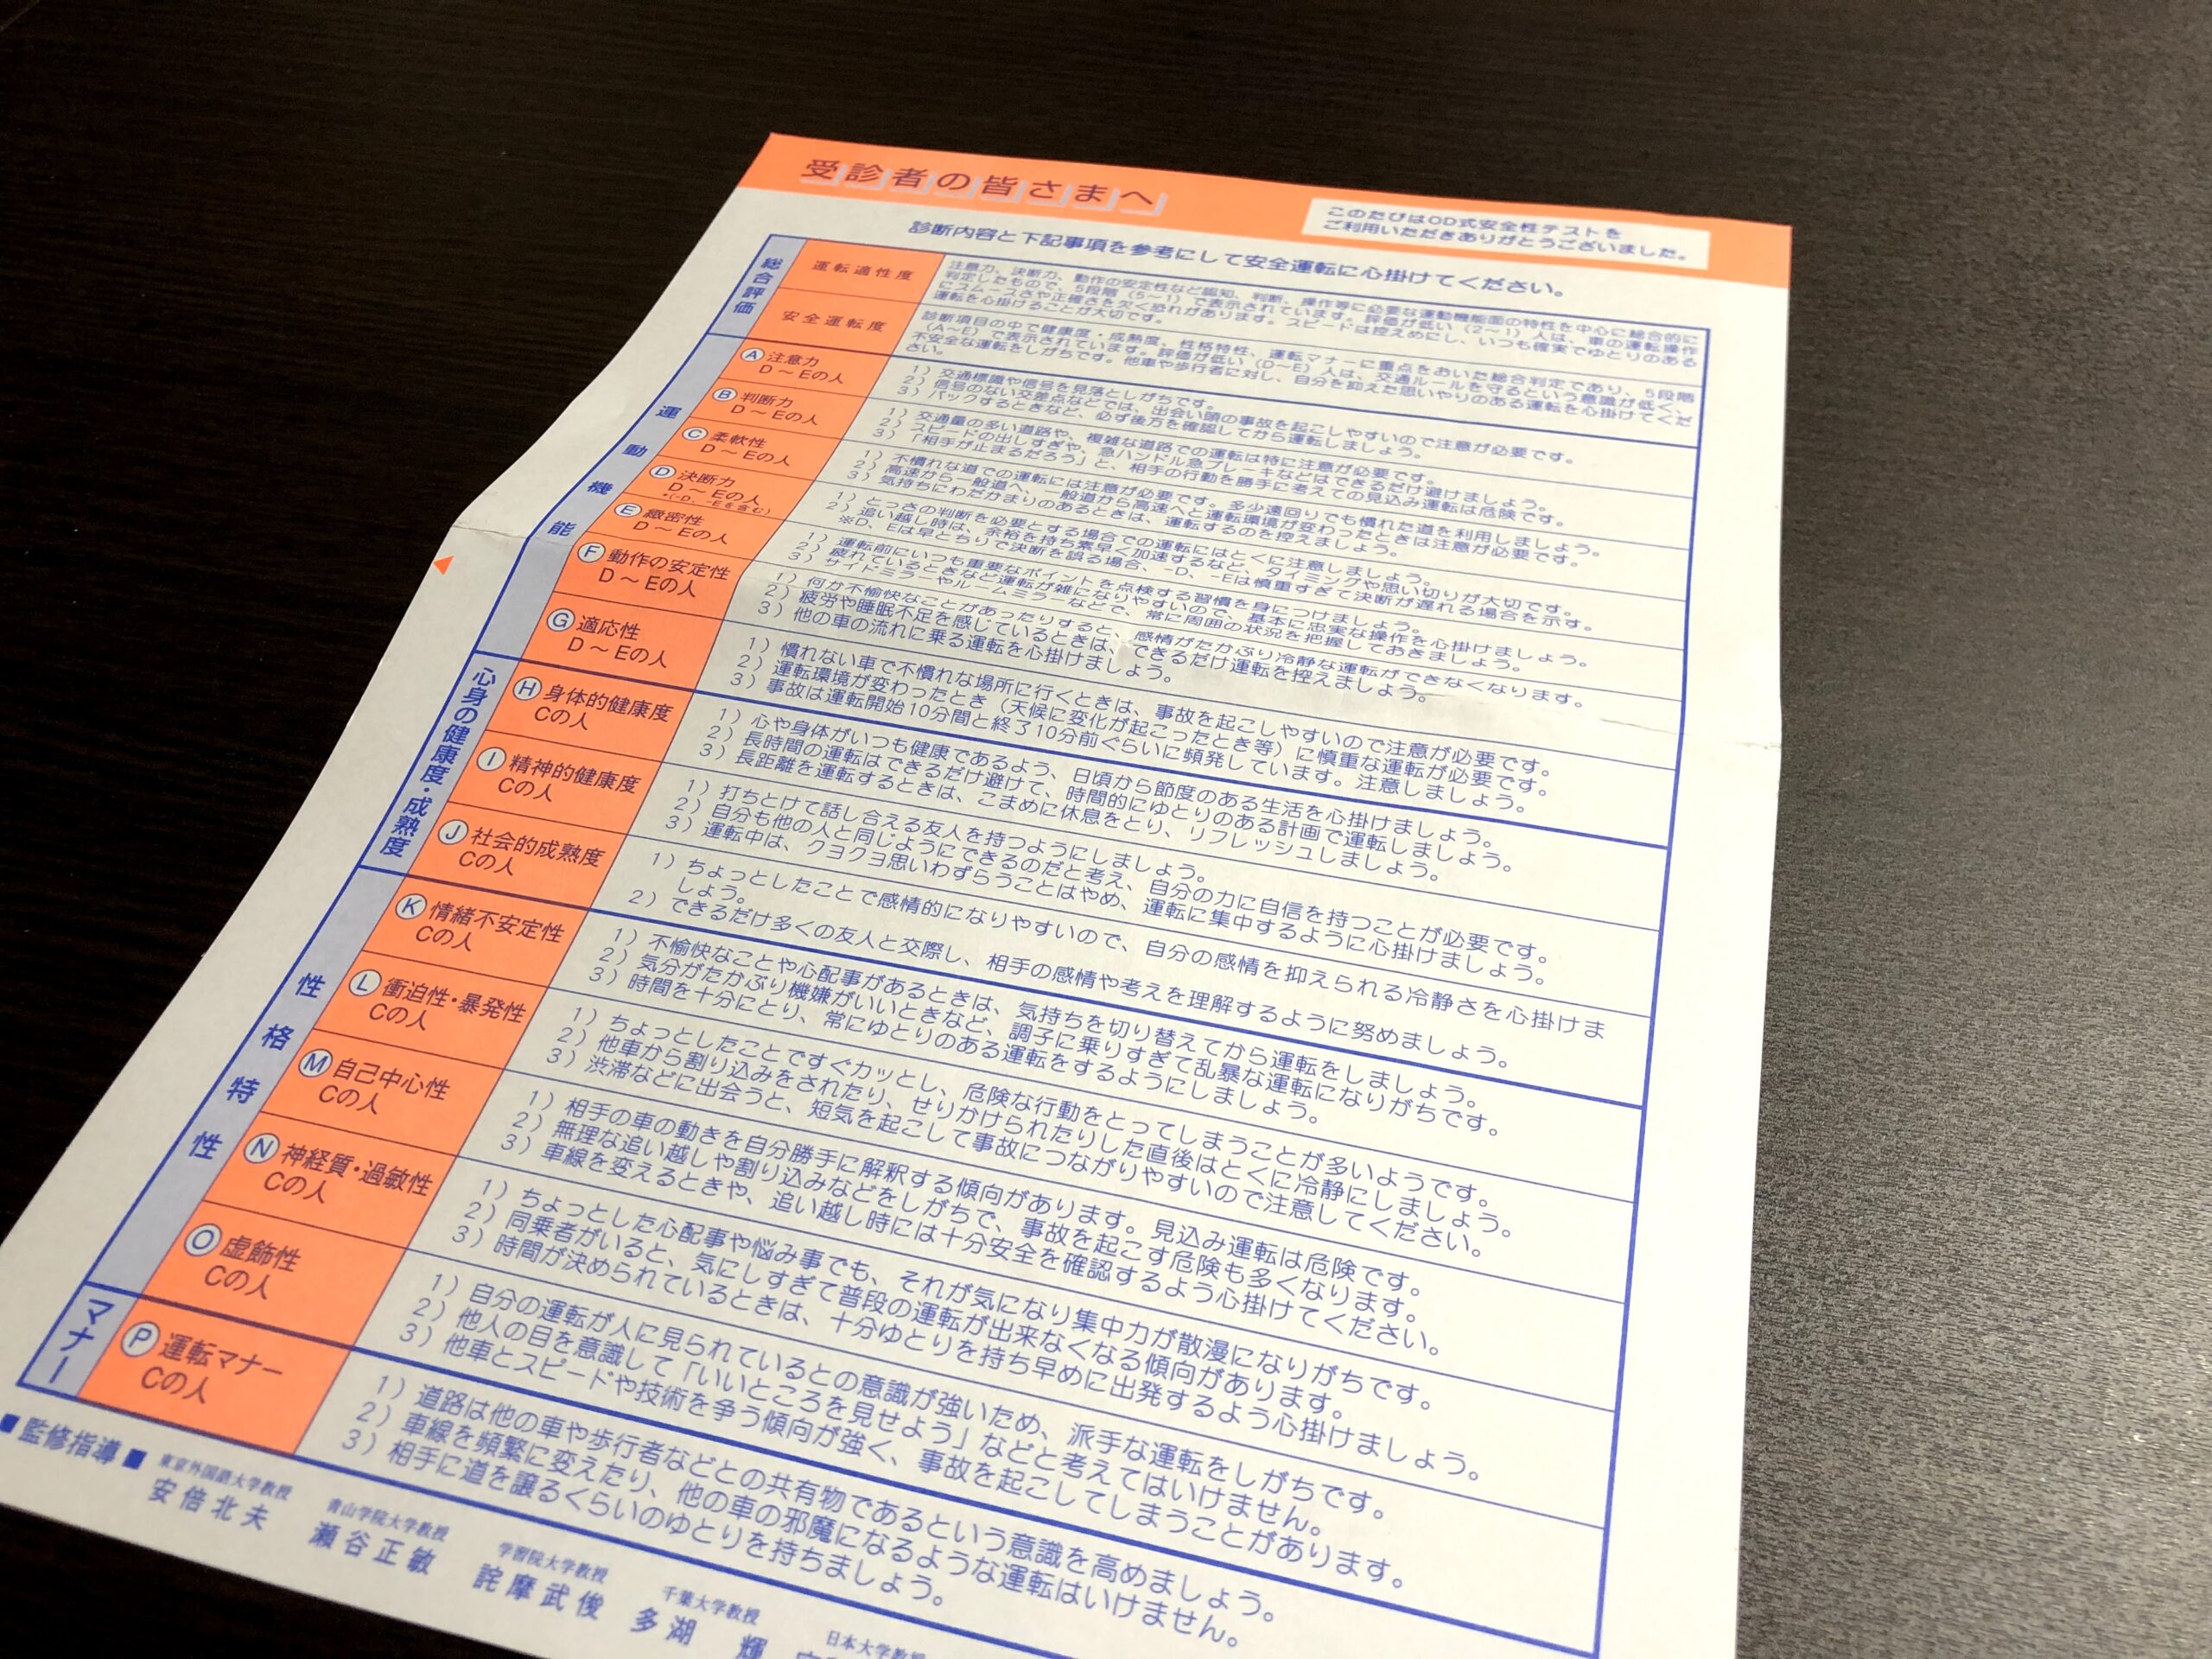 受診者の皆さまへ
このたびはOD式安全性テストを
ご利用いただきありがとうございました。
診断内容と下記事項を参考にして安全運転に心掛けてください。
総合評価
運転適性度
注意力、決断力、動作の安定性など認知、判断、操作等に必要な運動機能面の特性を中心に総合的に
判定したもので、5段階(5〜1)で表示されています。評価が低い(2〜1)人は、車の運転操作
にスムーズさや正確さを欠く恐れがあります。スピードは控えめにし、いつも確実でゆとりのある
運転を心掛けることが大切です。
安全運転度
診断項目の中で健康度・成熟度、性格特性、運転マナーに重点をおいた総合判定であり、5段階
(A〜E)で表示されています。評価が低い(D〜E)人は、交通ルールを守るという意識が低く、
不安全な運転をしがちです。他車や歩行者に対し、自分を抑えた思いやりのある運転を心掛けてくだ
さい。
運動機能
Ⓐ 注意力
D〜Eの人
1)交通標識や信号を見落としがちです。
2)信号のない交差点などでは、出会い頭の事故を起こしやすいので注意が必要です。
3)バックするときなど、必ず後方を確認してから運転しましょう。
Ⓑ 判断力
D〜Eの人
1)交通量の多い道路や、複雑な道路での運転は特に注意が必要です。
2)スピードの出しすぎや、急ハンドル急ブレーキなどはできるだけ避けましょう。
3)「相手が止まるだろう」と、相手の行動を勝手に考えての見込み運転は危険です。
Ⓒ 柔軟性
D〜Eの人
1)不慣れな道での運転には注意が必要です。多少遠回りでも慣れた道を利用しましょう。
2)高速から一般道へ、一般道から高速へと運転環境が変わったときは注意が必要です。
3)気持ちにわだかまりのあるときは、運転するのを控えましょう。
Ⓓ 決断力
D〜Eの人
*(−D、−Eを含む)
1)とっさの判断を必要とする場合での運転にはとくに注意しましょう。
2)追い越し時は、余裕を持ち素早く加速するなど、タイミングや思い切りが大切です。
※D、Eは早とちりで決断を誤る場合、−D、−Eは慎重すぎて決断が遅れる場合を示す。
Ⓔ 緻密性
D〜Eの人
1)運転前にいつも重要なポイントを点検する習慣を身につけましょう。
2)疲れているときなど運転が雑になりやすいので、基本に忠実な操作を心掛けましょう。
3)サイドミラーやルームミラーなどで、常に周囲の状況を把握しておきましょう。
Ⓕ 動作の安定性
D〜Eの人
1)何か不愉快なことがあったりすると、感情がたかぶり冷静な運転ができなくなります。
2)疲労や睡眠不足を感じているときは、できるだけ運転を控えましょう。
3)他の車の流れに乗る運転を心掛けましょう。
Ⓖ 適応性
D〜Eの人
1)慣れない車で不慣れな場所に行くときは、事故を起こしやすいので注意が必要です。
2)運転環境が変わったとき(天候に変化が起こったとき等)に慎重な運転が必要です。
3)事故は運転開始10分間と終了10分前ぐらいに頻発しています。注意しましょう。
心身の健康度・成熟度
Ⓗ 身体的健康度
Cの人
1)心や身体がいつも健康であるよう、日頃から節度のある生活を心掛けましょう。
2)長時間の運転はできるだけ避けて、時間的にゆとりのある計画で運転しましょう。
3)長距離を運転するときは、こまめに休息をとり、リフレッシュしましょう。
Ⓘ 精神的健康度
Cの人
1)打ちとけて話し合える友人を持つようにしましょう。
2)自分も他の人と同じようにできるのだと考え、自分の力に自信を持つことが必要です。
3)運転中は、クヨクヨ思いわずらうことはやめ、運転に集中するように心掛けましょう。
Ⓙ 社会的成熟度
Cの人
1)ちょっとしたことで感情的になりやすいので、自分の感情を抑えられる冷静さを心掛けま
しょう。
2)できるだけ多くの友人と交際し、相手の感情や考えを理解するように努めましょう。
性格特性
Ⓚ 情緒不安定性
Cの人
1)不愉快なことや心配事があるときは、気持ちを切り替えてから運転をしましょう。
2)気分がたかぶり機嫌がいいときなど、調子に乗りすぎて乱暴な運転になりがちです。
3)時間を十分にとり、常にゆとりのある運転をするようにしましょう。
Ⓛ 衝迫性・暴発性
Cの人
1)ちょっとしたことですぐカッとし、危険な行動をとってしまうことが多いようです。
2)他車から割り込みをされたり、せりかけられたりした直後はとくに冷静にしましょう。
3)渋滞などに出会うと、短気を起こして事故につながりやすいので注意してください。
Ⓜ 自己中心性
Cの人
1)相手の車の動きを自分勝手に解釈する傾向があります。見込み運転は危険です。
2)無理な追い越しや割り込みなどをしがちで、事故を起こす危険も多くなります。
3)車線を変えるときや、追い越し時には十分安全を確認するよう心掛けてください。
Ⓝ 神経質・過敏性
Cの人
1)ちょっとした心配事や悩み事でも、それが気になり集中力が散漫になりがちです。
2)同乗者がいると、気にしすぎて普段の運転が出来なくなる傾向があります。
3)時間が決められているときは、十分ゆとりを持ち早めに出発するよう心掛けましょう。
Ⓞ 虚飾性
Cの人
1)自分の運転が人に見られているとの意識が強いため、派手な運転をしがちです。
2)他人の目を意識して「いいところを見せよう」などと考えてはいけません。
3)他車とスピードや技術を争う傾向が強く、事故を起こしてしまうことがあります。
マナー
Ⓟ 運転マナー
Cの人
1)道路は他の車や歩行者などとの共有物であるという意識を高めましょう。
2)車線を頻繁に変えたり、他の車の邪魔になるような運転はいけません。
3)相手に道を譲るくらいのゆとりを持ちましょう。
■監修指導■
東京外国語大学教授
安倍北夫
青山学院大学教授
瀬谷正敏
学習院大学教授
詫摩武俊
千葉大学教授
多湖 輝
日本大学教授